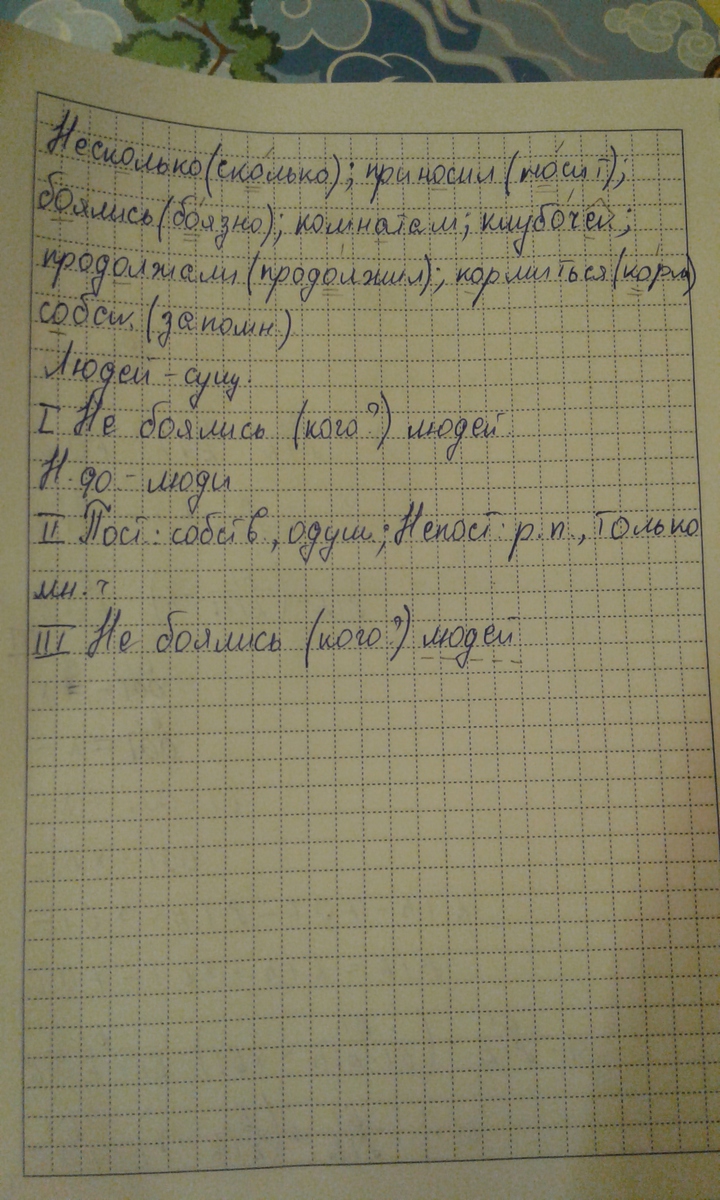 Несколько (сколько); приносил (носит);
боялись (боязно); комнатам; клубочей;
продолжали (продолжил); кормиться (корм)
собси. (запомн)
Людей - сущ.
I Не боялись (кого?) людей
Н. фо - люди
II Пост: собств, одуш; Непост: р.п., только
мн. ч
III Не боялись (кого?) людей